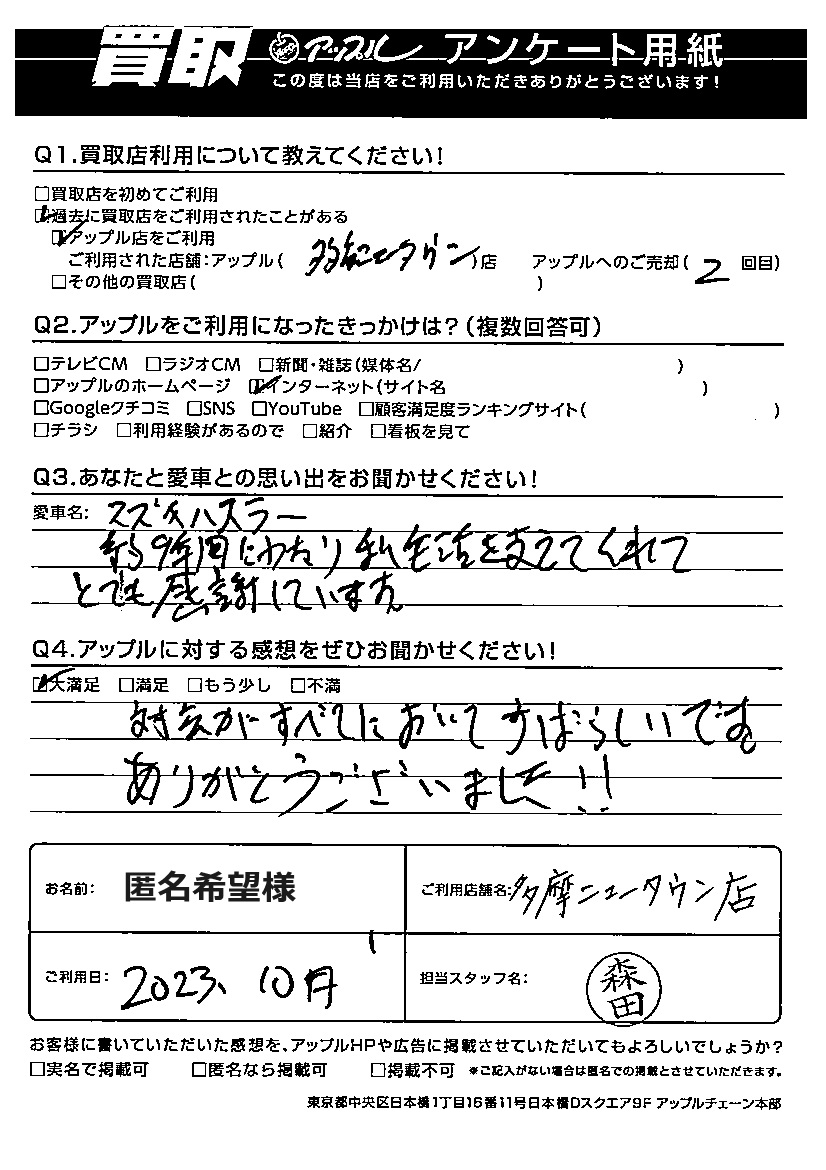 買取 アップル アンケート用紙
この度は当店をご利用いただきありがとうございます!
Q1.買取店利用について教えてください!
□買取店を初めてご利用
☑過去に買取店をご利用されたことがある
☑アップル店をご利用
ご利用された店舗:アップル( 多摩ニュータウン )店 アップルへのご売却( 2 回目)
□その他の買取店( )
Q2.アップルをご利用になったきっかけは?(複数回答可)
□テレビCM □ラジオCM □新聞・雑誌(媒体名/ )
□アップルのホームページ ☑インターネット(サイト名 )
□Googleクチコミ □SNS □YouTube □顧客満足度ランキングサイト( )
□チラシ □利用経験があるので □紹介 □看板を見て
Q3.あなたと愛車との思い出をお聞かせください!
愛車名: スズキハスラー
約9年間にわたり私生活を支えてくれて
とても感謝しています
Q4.アップルに対する感想をぜひお聞かせください!
☑大満足 □満足 □もう少し □不満
対応がすべてにおいてすばらしいです
ありがとうございました!!
お名前: 匿名希望様
ご利用店舗名:多摩ニュータウン店
ご利用日: 2023、10月
担当スタッフ名: 森田
お客様に書いていただいた感想を、アップルHPや広告に掲載させていただいてもよろしいでしょうか?
□実名で掲載可 □匿名なら掲載可 □掲載不可 ※ご記入がない場合は匿名での掲載とさせていただきます。
東京都中央区日本橋1丁目16番11号日本橋Dスクエア9F アップルチェーン本部